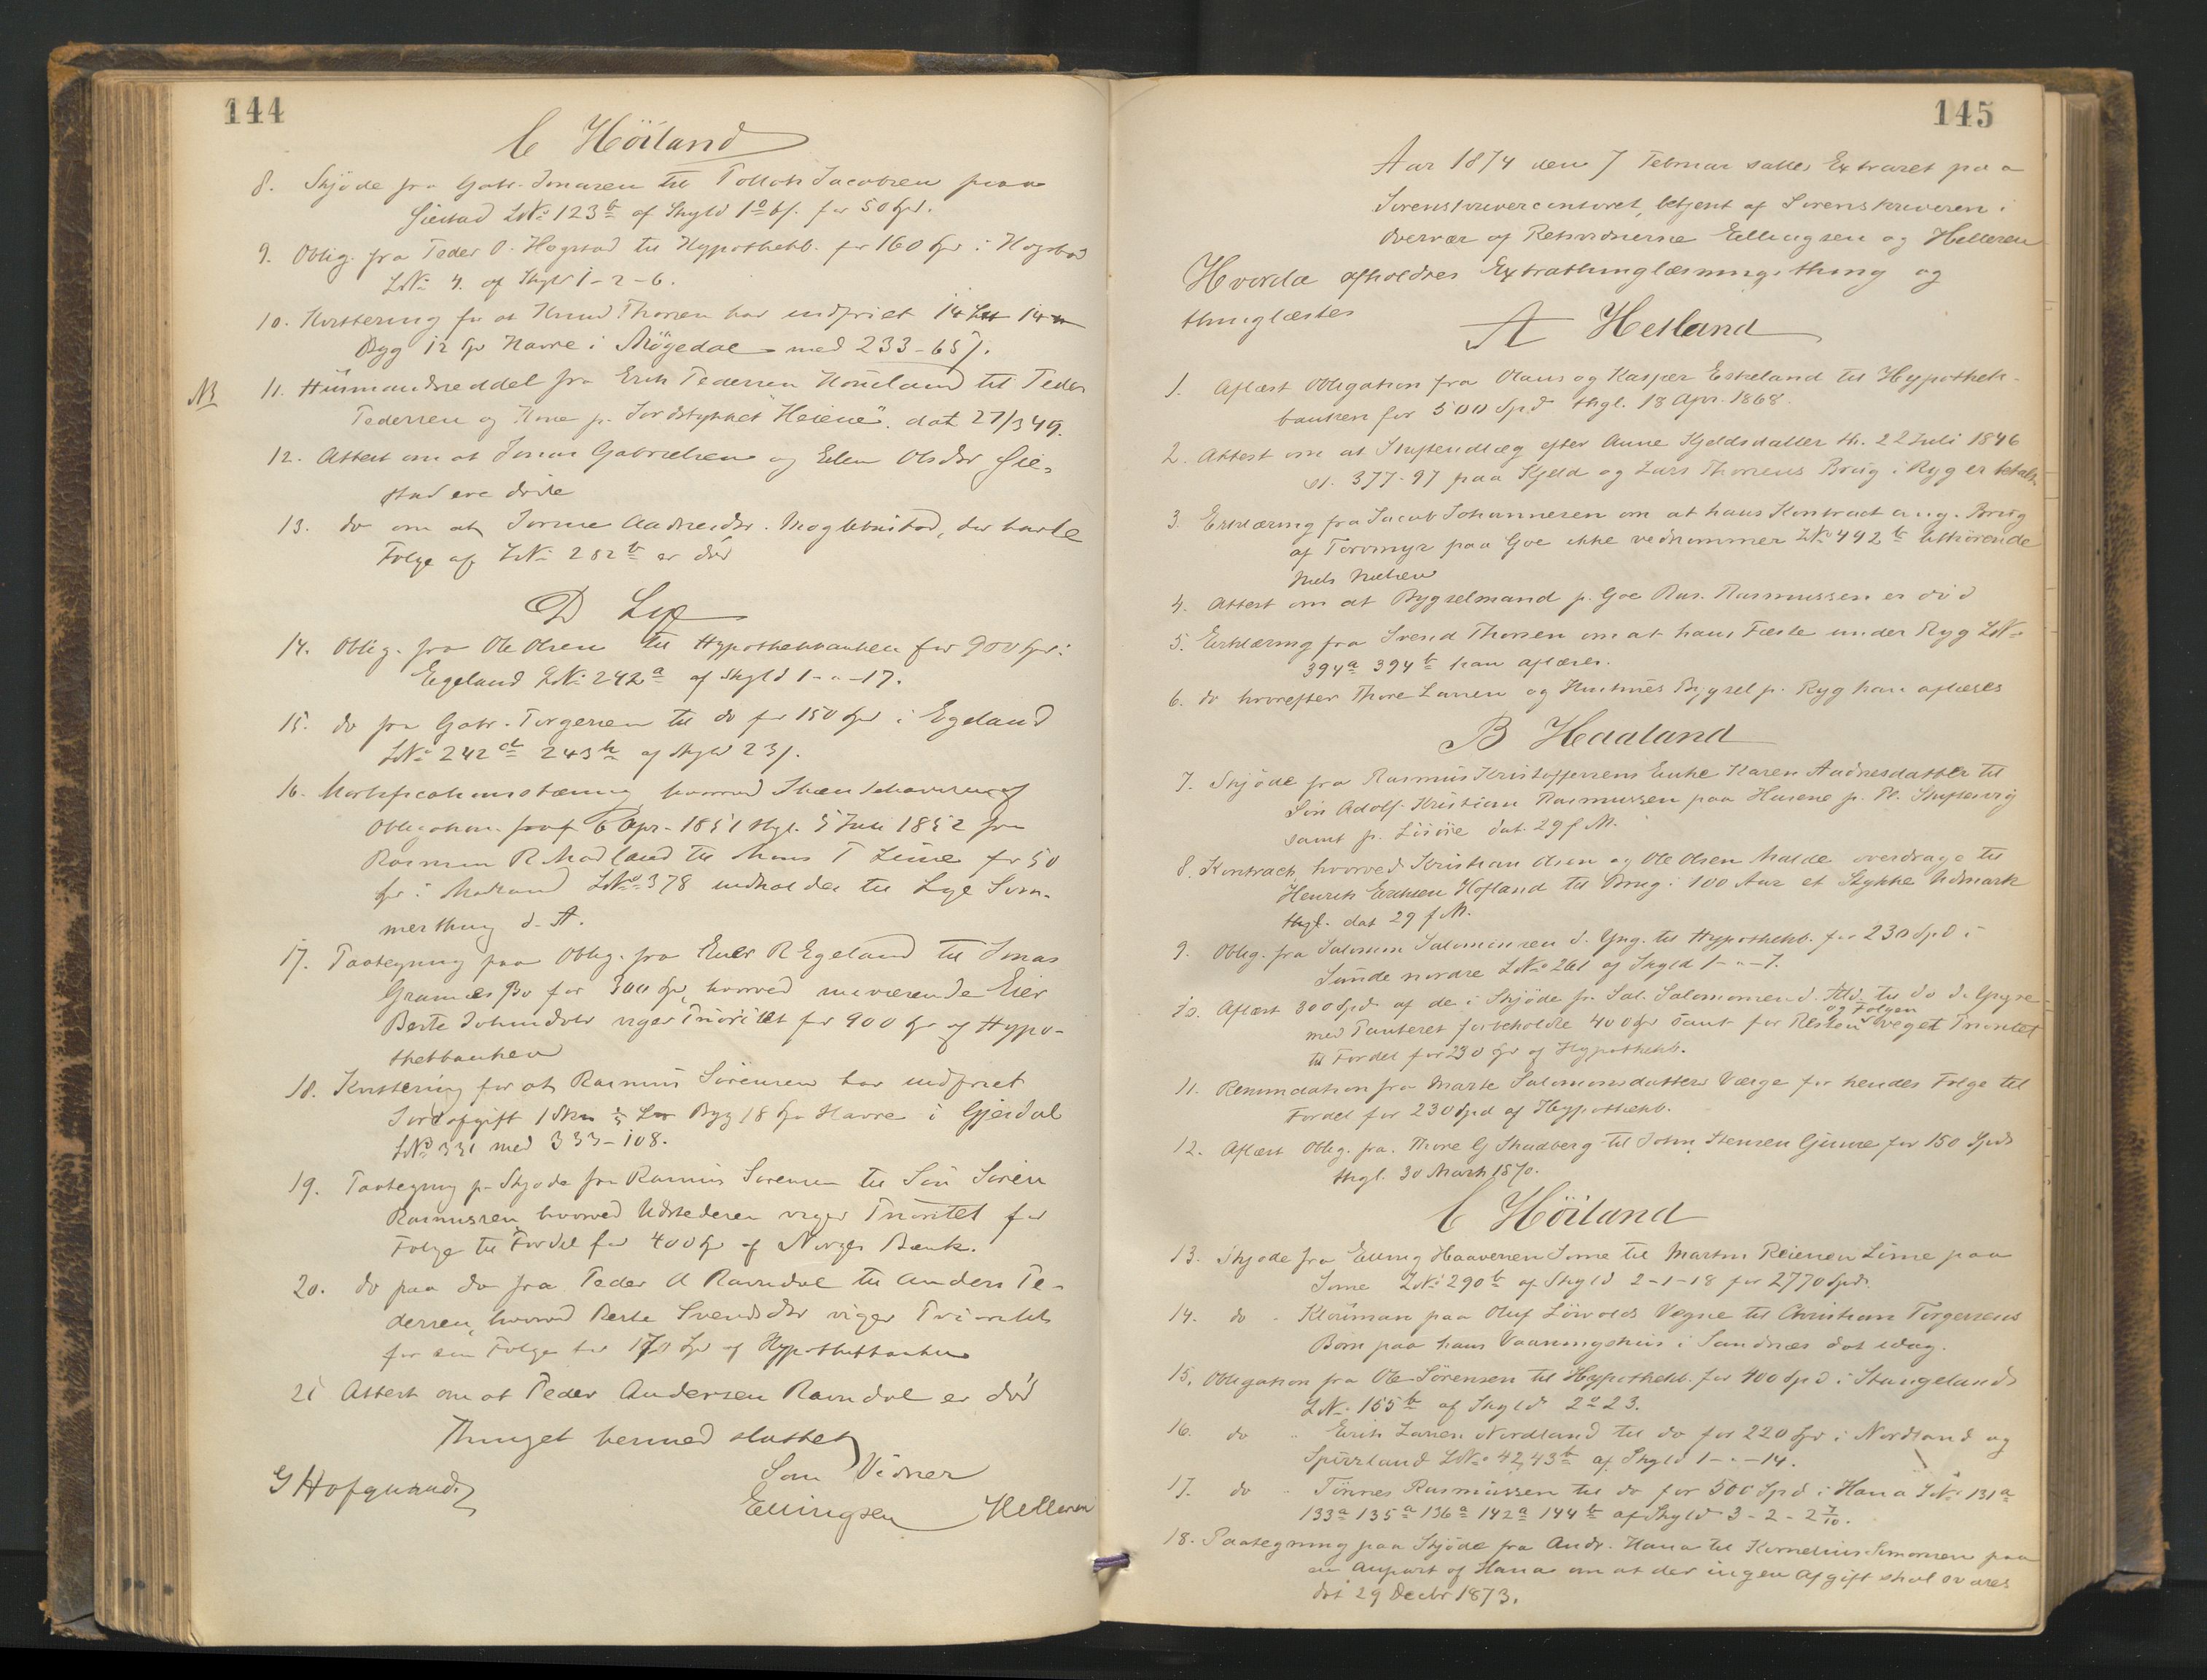 144
C Höiland
8. Skjöde fra Gabr. Jonasen til Tollok Jacobsen paa
Gilstad LNo 123b af Skyld 1 0 6/. for 50 Spd.
9. Oblig. fra Peder O. Hogstad til Hypothekb. for 160 Spd i Hogstad
LNo 4. af Skyld 1-2-6.
10. Kvittering for at Knud Thorsen har indfriet 14
Byg 12 Havre i med 233-65/.
NB 11. Husmandsseddel fra Erik Pedersen Houeland til Peder
Pedersen og Kone p. Jordstykket "Heiene". dat 27/3 49.
12. Attest om at Jonas Gabrielsen og Elen Olsdtr Gil-
stad ere döde
13. do om at Aadnesdtr. havde
Folge af LNo 282b er död
D Lye
14. Oblig. fra Ole Olsen til Hypothekbanken for 900 Spd i
Egeland LNo 242a af Skyld 1-"-17.
15. do fra Gabr. Torgersen til do for 150 Spd i Egeland
LNo 242 243b af Skyld 23/.
16. Mortificationsstævning hvorved af
Obligation 6 Apr. 1851 thgl. 5 Juli 1852 fra
Rasmus R. Madland til Mons T Lime for 50
Spd i Madland LNo 378 indkaldes til Lye Som-
merthing d. A.
17. Paategning paa Oblig. fra R Egeland til Jonas
Bo for 300 Spd, hvorved nuværende Eier
Berte viger Prioritet for 900 Spd af Hypo-
thekbanken
18. Kvittering for at Rasmus Sörensen har indfriet
Jordafgift Byg 18 Havre i Gjesdal
LNo 331 med 333-108.
19. Paategning p. Skjöde fra Rasmus Sorensen til Sön Sören
Rasmussen, hvorved Udstederen viger Prioritet for
Folge til Fordel for 400 Spd af Norges Bank.
20. do paa do fra Peder A Ravndal til Anders Pe-
dersen, hvorved Berte Svendsdtr viger Prioritet
for sin Folge for 170 Spd af Hypothekbanken
21 Attest om at Peder Andersen Ravndal er död
Thinget hermed sluttet
G Hofgaard Som Vidner
Ellingsen Helleren
145
Aar 1874 den 7 Februar sattes Extraret paa
Sorenskrivercontoret, betjent af Sorenskriveren i
Overvær af Retsvidnerne Ellingsen og Helleren
Hvorda afholdtes Extrathinglæsningsthing og
thinglæstes
A Hetland
1. Aflæst Obligation fra Olaus og Kasper Eskeland til Hypothek-
banken for 500 Spd thgl. 18 Apr. 1868.
2. Attest om at Skifteudlæg efter Anne Kjeldsdatter th. 22 Juli 1846
st. 377-97 paa Kjeld og Lars Thorsens Brug i Ryg er betalt
3. Erklæring fra Jacob Johannesen om at hans Kontract ang. Brug
af Torvmyr paa Goe ikke vedkommer LNo 492b tilhörende
Niels Nielsen
4. Attest om at Bygselmand p. Goe Ras. Rasmussen er död
5. Erklæring fra Svend Thorsen om at hans Fæste under Ryg LNo
394a 394b kan aflæses.
6. do hvorefter Thore Larsen og Hustrues Bygsel p. Ryg kan aflæses
B Haaland
7. Skjöde fra Rasmus Kristoffersens Enke Karen Aadnesdatter til
Sön Adolf Kristian Rasmussen paa Husene p. Pl.
samt p. dat. 29 f. M.
8. Kontract, hvorved Kristian Olsen og Ole Olsen Malde overdrage til
Henrik Eriksen Hofland til Brug i 100 Aar et Stykke Udmark
thgl. dat 29 f M.
9. Oblig. fra Salomon Salomonsen d. Yng. til Hypothekb. for 230 Spd i
Sunde nordre LNo 261 af Skyld 1-"-7.
10. Aflæst 300 Spd. af de i Skjöde fr. Sal. Salomonsen d. Æld. til do d. Yngre
med Panteret forbeholdte 400 Spd samt for Resten og Folgen veget Prioritet
til Fordel for 230 Spd af Hypothekb.
11. Renunciation fra Marte Salomonsdatters Værge for hendes Folge til
Fordel for 230 Spd af Hypothekb.
12. Aflæst Oblig. fra. Thore G Skadberg til John Stensen Gimre for 150 Spd
thgl. 30 Marts 1870.
C Höiland
13. Skjöde fra Elling Haaversen Some til Martin Reiersen Lime paa
Some LNo 290b af Skyld 2-1-18 for 2770 Spd.
14. do " Klouman paa Oluf Lövolds Vegne til Christian Torgersens
Börn paa hans Vaaningshus i Sandnæs dat idag.
15. Obligation fra Ole Sörensen til Hypothekb. for 400 Spd i Stangeland
LNo 155b af Skyld 2 0 23.
16. do " Erik Larsen Nordland til do for 220 Spd i Nordland og
LNo 42, 43b af Skyld 1-"-14.
17. do " Tönnes Rasmussen til do for 500 Spd i Hana LNo 131a
133a 135a 136a 142a 144b af Skyld 3-2-2 7/10.
18. Paategning paa Skjöde fra Andr. Hana til Kornelius Simonsen paa
en Anpart af Hana om at der ingen Afgift skal svares
dat 29 Decbr 1873.